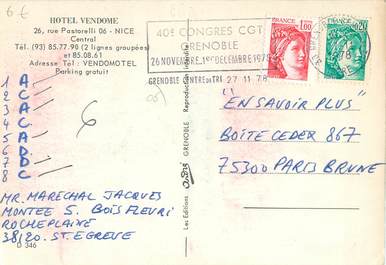 6€
HOTEL VENDOME
26, rue Pastorelli 06 - NICE
Central
Tél. (93) 85.77.90 (2 lignes groupées)
et 85.08.61
Adresse Tél : VENDOMOTEL
Parking gratuit
40e CONGRES CGT
GRENOBLE
26 NOVEMBRE.1er DECEMBRE 1978
GRENOBLE CENTRE de TRI 27 11 78
FRANCE
1,00
FRANCE
0,20
1 A
2 C
3 A
4 C
5 A
6 D
7 D
8 C
6
MR. MARECHAL JACQUES
MONTEE S. BOIS FLEURI
ROCHEPLAINE
38120. ST. EGREVE
D 346
Les Editions
GRENOBLE - Reproduction
"EN SAVOIR PLUS"
BOITE CEDEX 867
75300 PARIS BRUNE